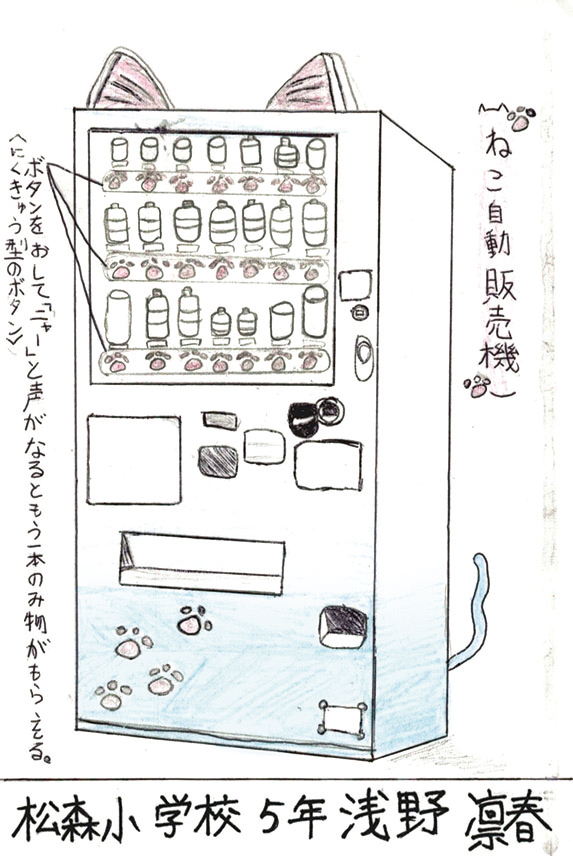 ねこ自動販売機
ボタンをおして「ニャー」と声がなるともう一本のみ物がもらえる。
〈にくきゅう型のボタン〉
松森小学校5年浅野凛春